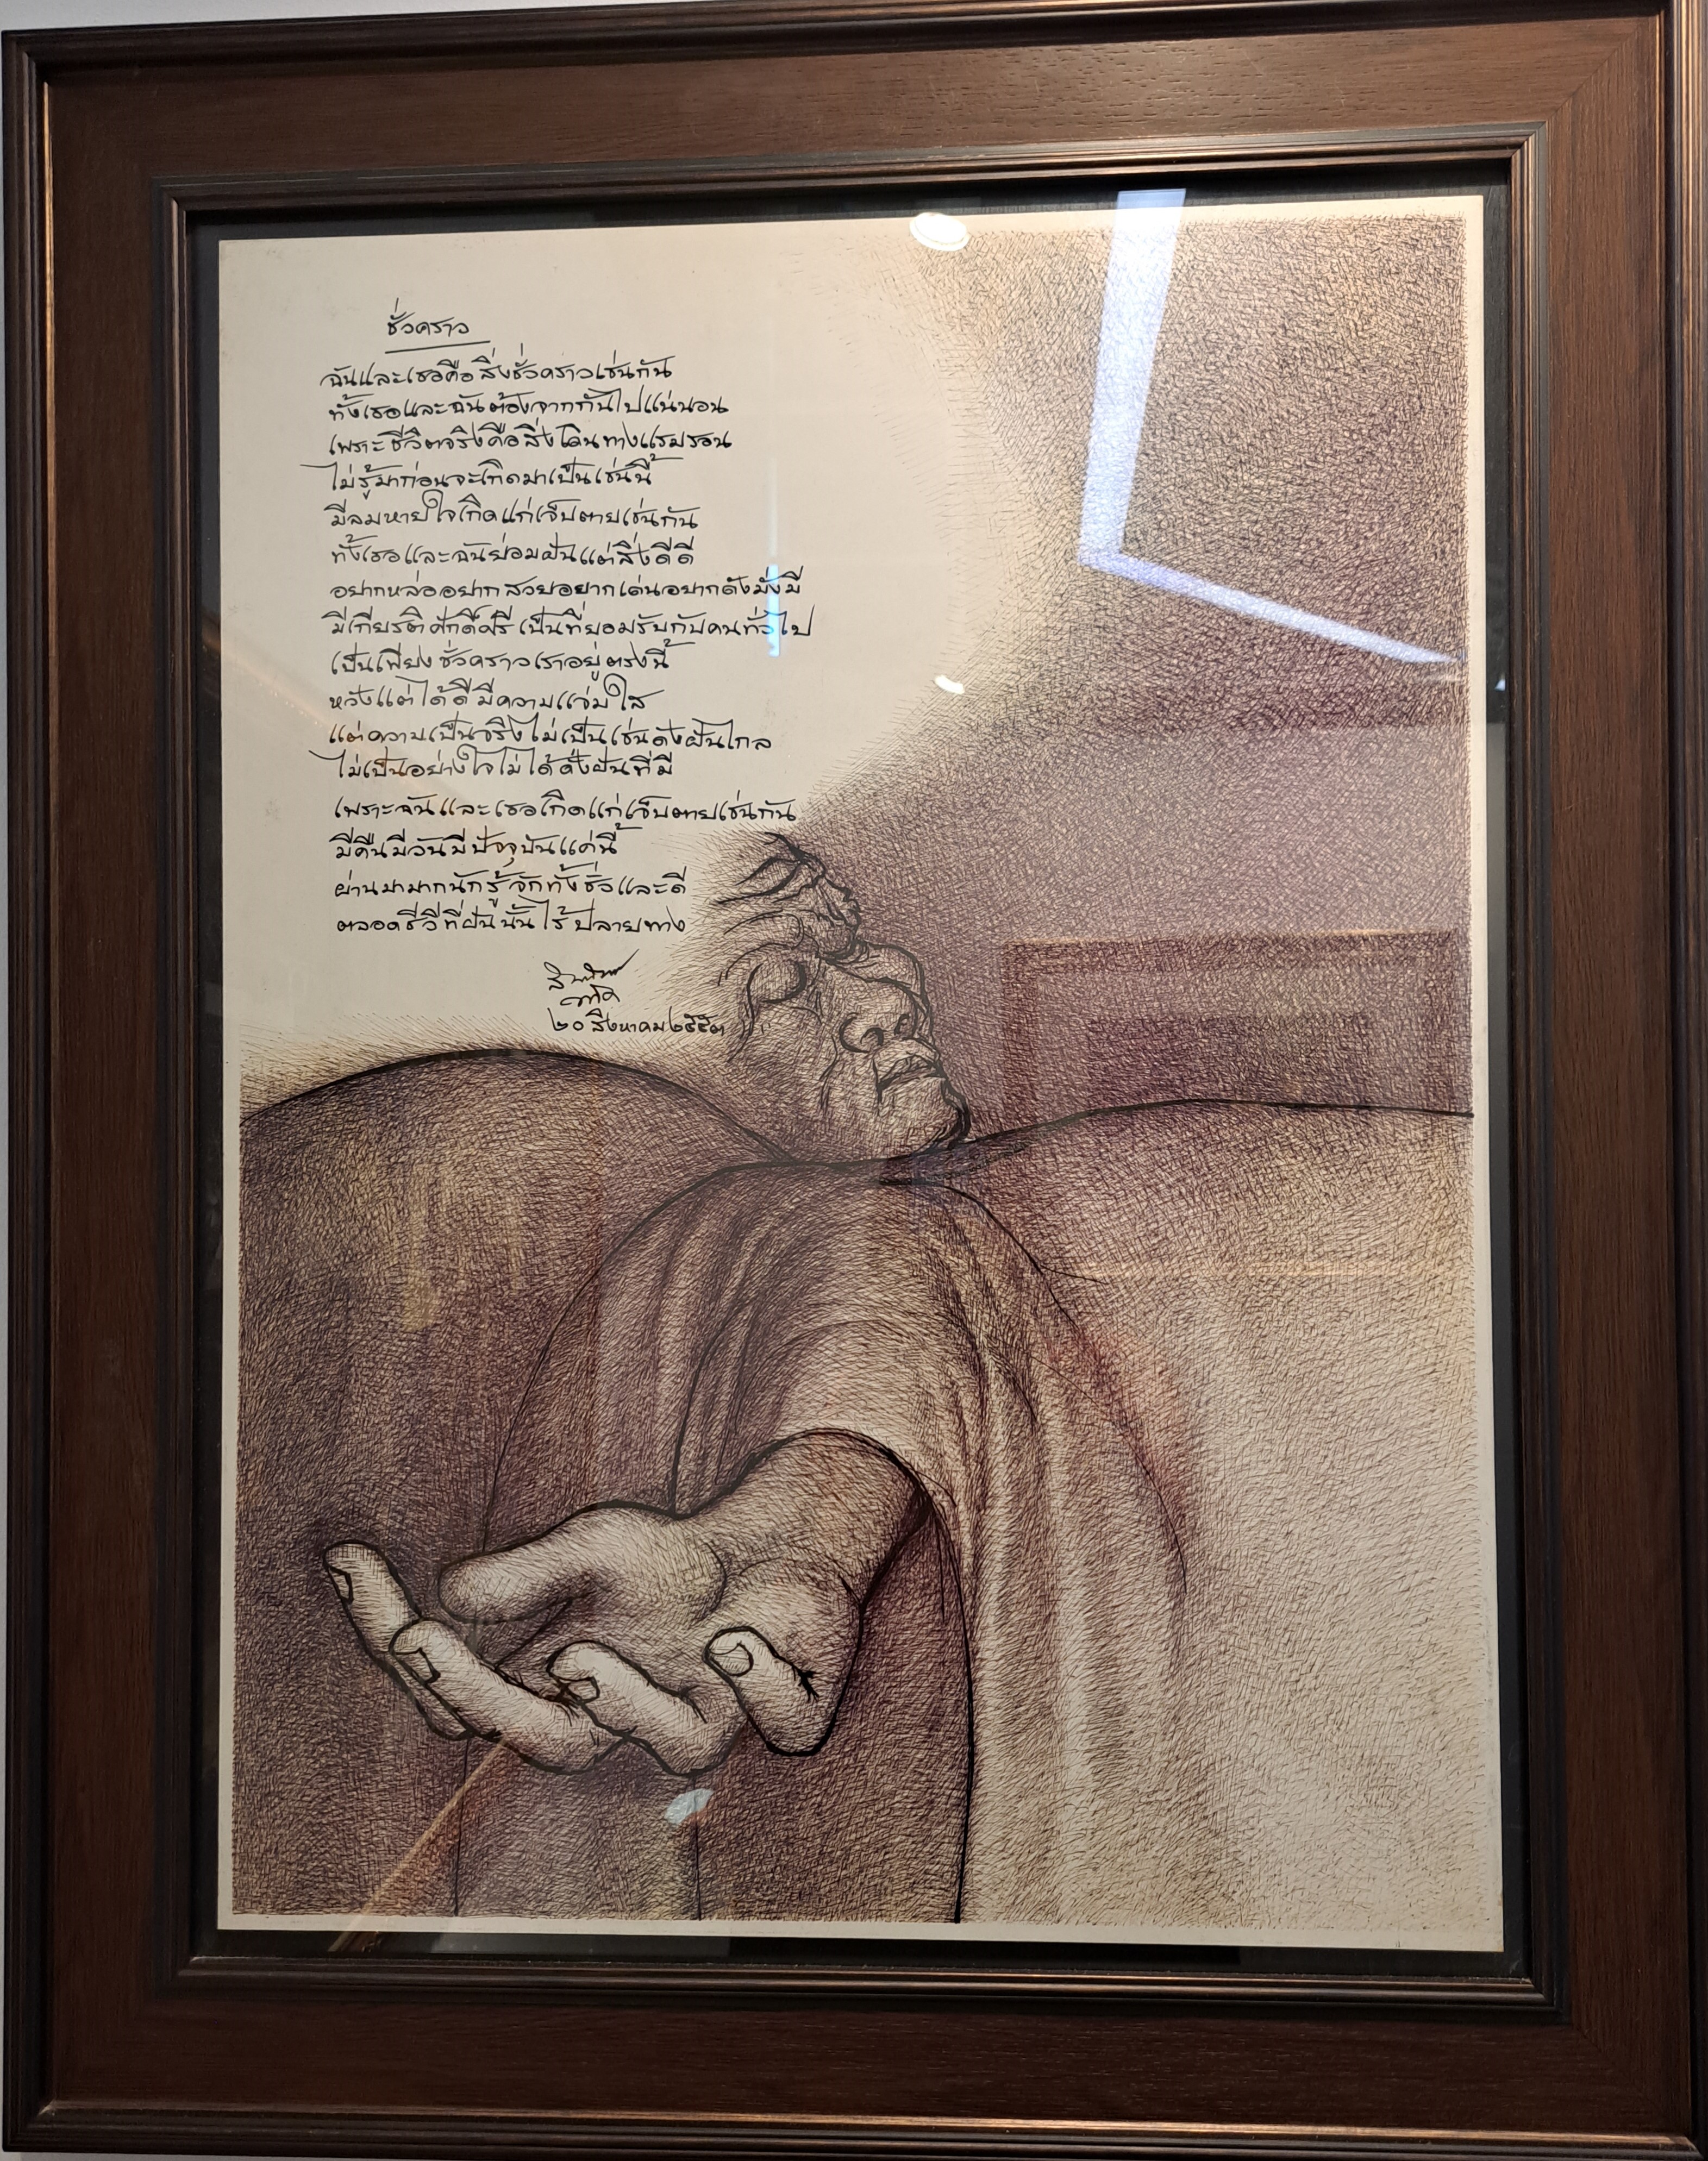 ชั่วคราว
ฉันและเธอคือสิ่งชั่วคราวเช่นกัน
ทั้งเธอและฉันต้องจากกันไปแน่นอน
เพราะชีวิตจริงคือสิ่งเดินทางแรมรอน
ไม่รู้มาก่อนจะเกิดมาเป็นเช่นนี้
มีลมหายใจเกิดแก่เจ็บตายเช่นกัน
ทั้งเธอและฉันย่อมฝันแต่สิ่งดีดี
อยากหล่ออยากสวยอยากเด่นอยากดังมั่งมี
มีเกียรติศักดิ์ศรีเป็นที่ยอมรับกับคนทั่วไป
เป็นเพียงชั่วคราวเราอยู่ตรงนี้
หวังแต่ได้ดีมีความแจ่มใส
แต่ความเป็นจริงไม่เป็นเช่นดังฝันไกล
ไม่เป็นอย่างใจไม่ได้ดั่งฝันที่มี
เพราะฉันและเธอเกิดแก่เจ็บตายเช่นกัน
มีคืนมีวันมีปัจจุบันแค่นี้
ผ่านมามากนักรู้จักทั้งชั่วและดี
ตลอดชีวีที่ฝันนั้นไร้ปลายทาง
๒๐ สิงหาคม ๒๕๕๓